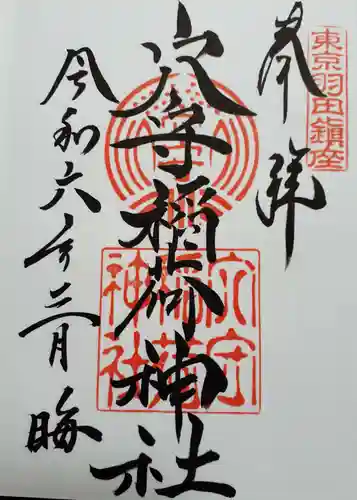 東京羽田鎮座
奉拝
穴守稲荷神社
穴守稲荷神社
令和六年三月晦